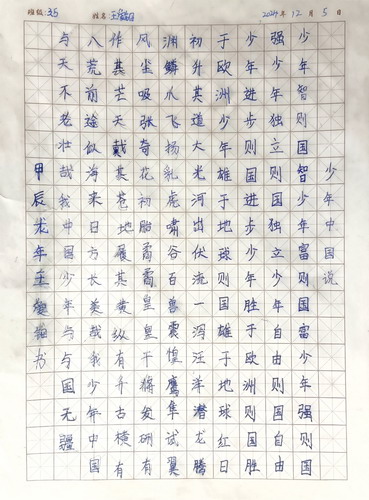 班级:35 姓名:王 2024年12月5日
少年中国说
少年智则国智少年富则国富少年强则国
强少年独立则国独立少年自由则国自由
少年进步则国进步少年胜于欧洲则国胜
于欧洲少年雄于地球则国雄于地球红日
初升其道大光河出伏流一泻汪洋潜龙腾
渊鳞爪飞扬乳虎啸谷百兽震惶鹰隼试翼
风尘吸张奇花初胎矞矞皇皇干将发硎有
作其芒天戴其苍地履其黄纵有千古横有
八荒前途似海来日方长美哉我少年中国
与天不老壮哉我中国少年与国无疆
甲辰龙年王书